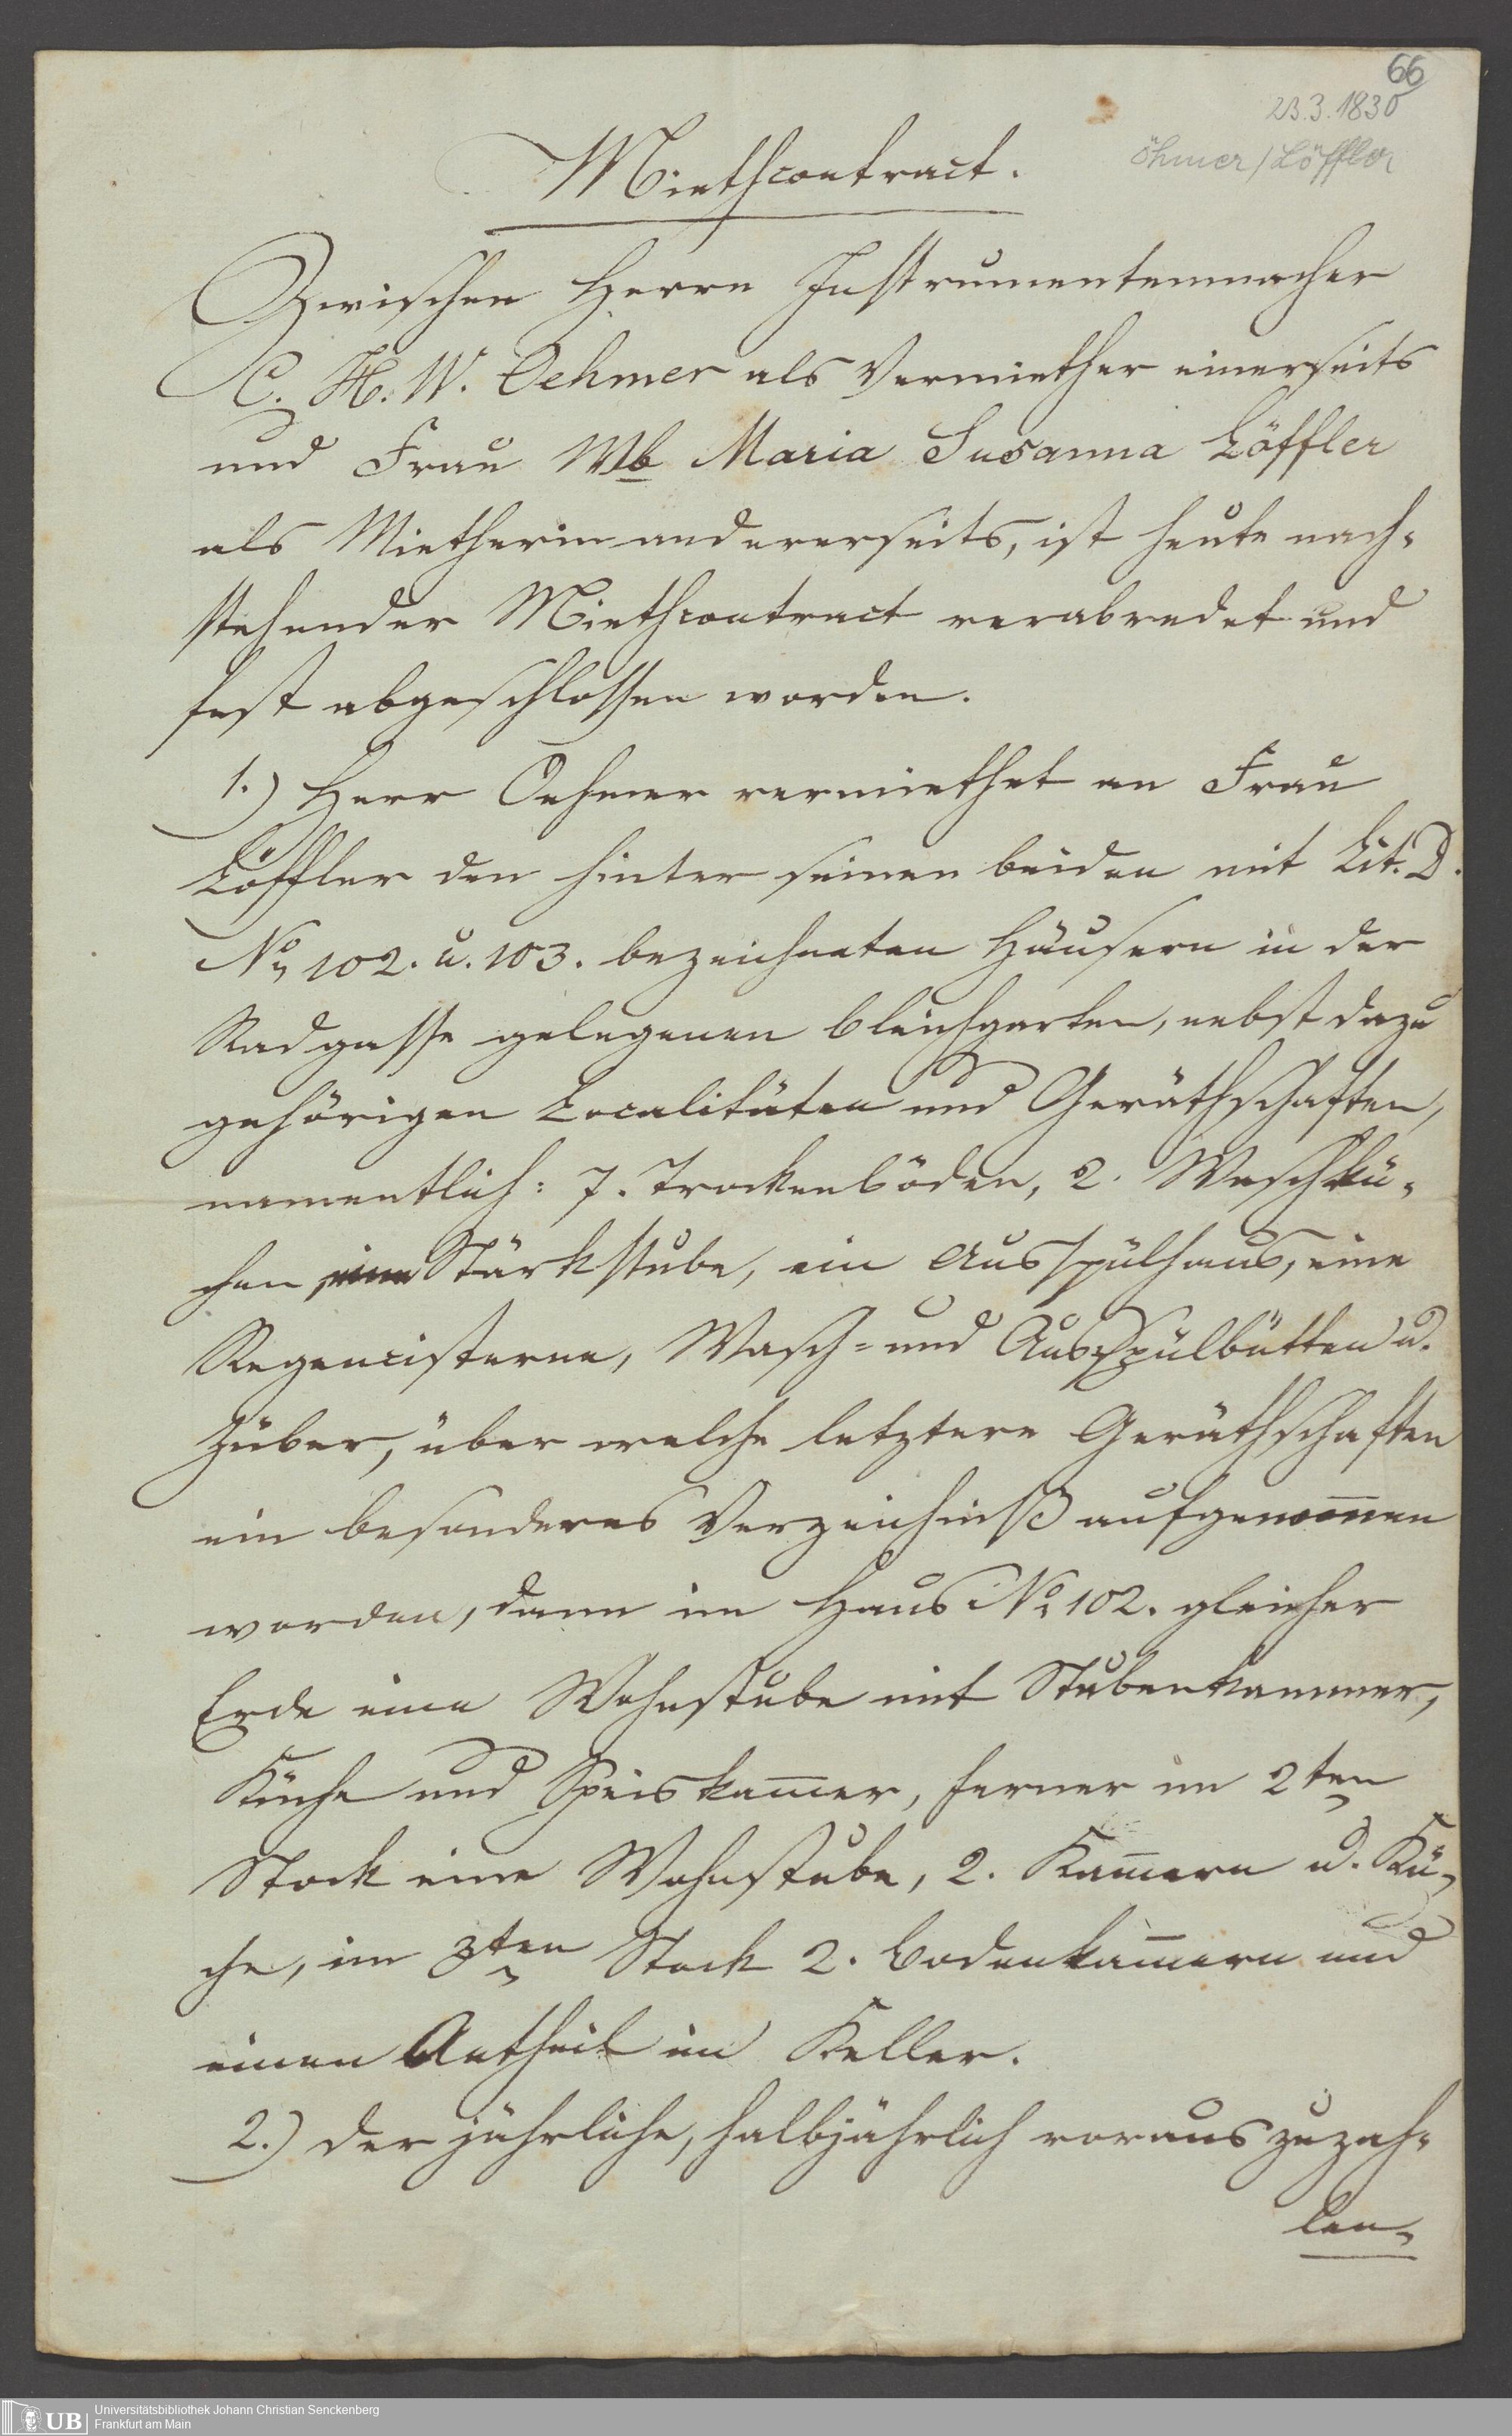 66
23.3.1830
Öhmer/Löffler
Miethcontract.
Zwischen Herrn Instrumentenmacher
C. H. W. Oehmer als Vermiether einerseits
und Frau Wb Maria Susanna Löffler
als Mietherin andererseits, ist heute nach-
stehender Miethcontract verabredet und
fest abgeschlossen worden.
1.) Herr Oehmer vermiethet an Frau
Löffler den hinter seinen beiden mit Lit. D.
No 102. u. 103. bezeichneten Häusern in der
Radgasse gelegenen Bleichgarten, nebst dazu
gehörigen Localitäten und Geräthschaften,
namentlich: 7. Trockenböden, 2. Waschkü-
chen, eine Stärkstube, ein Ausspülhaus, eine
Regencisterne, Wasch- und Ausspülbütten u.
Züber, über welche letztere Geräthschaften
ein besonderes Verzeichniß aufgenom̄en
worden, dann im Haus No 102. gleicher
Erde eine Wohnstube mit Stubenkammer,
Küche und Speiskam̄er, ferner im 2ten
Stock eine Wohnstube, 2. Kam̄ern u. Kü-
che, im 3ten Stock 2. Bodenkam̄ern und
einen Antheil im Keller.
2.) Der jährliche, halbjährlich vorauszuzah-
len-
UB
Universitätsbibliothek Johann Christian Senckenberg
Frankfurt am Main